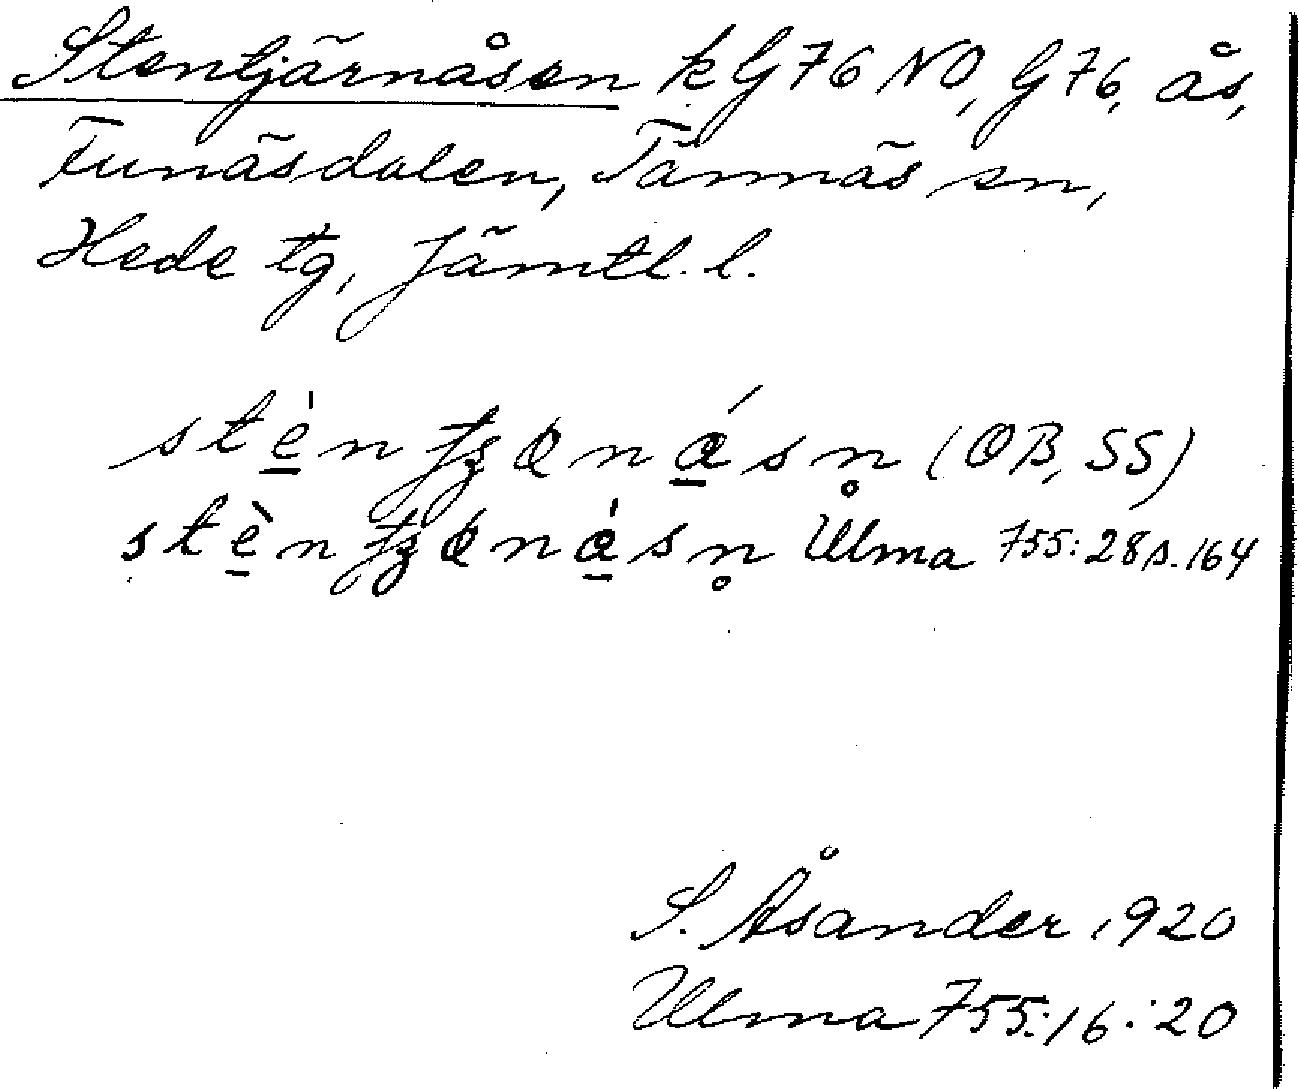 Stentjärnåsen k G 76 NO, G 76, ås,
Funäsdalen, Tännäs sn,
Hede tg, Jämtl. l.
(OB, SS)
Ulma 755:28 s. 164
S. Åsander 1920
Ulma 755:16:20